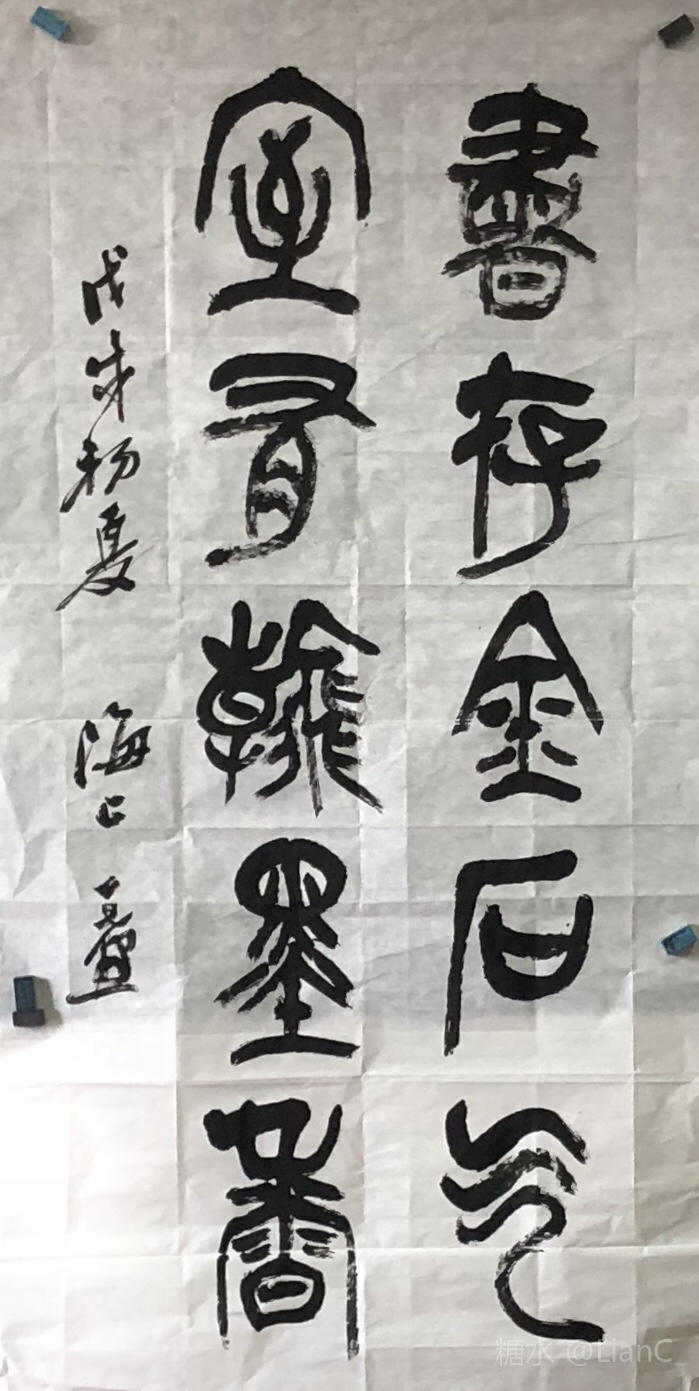 書存金石气
室有翰墨香
戊戌初夏 海上
糖水 @LianC